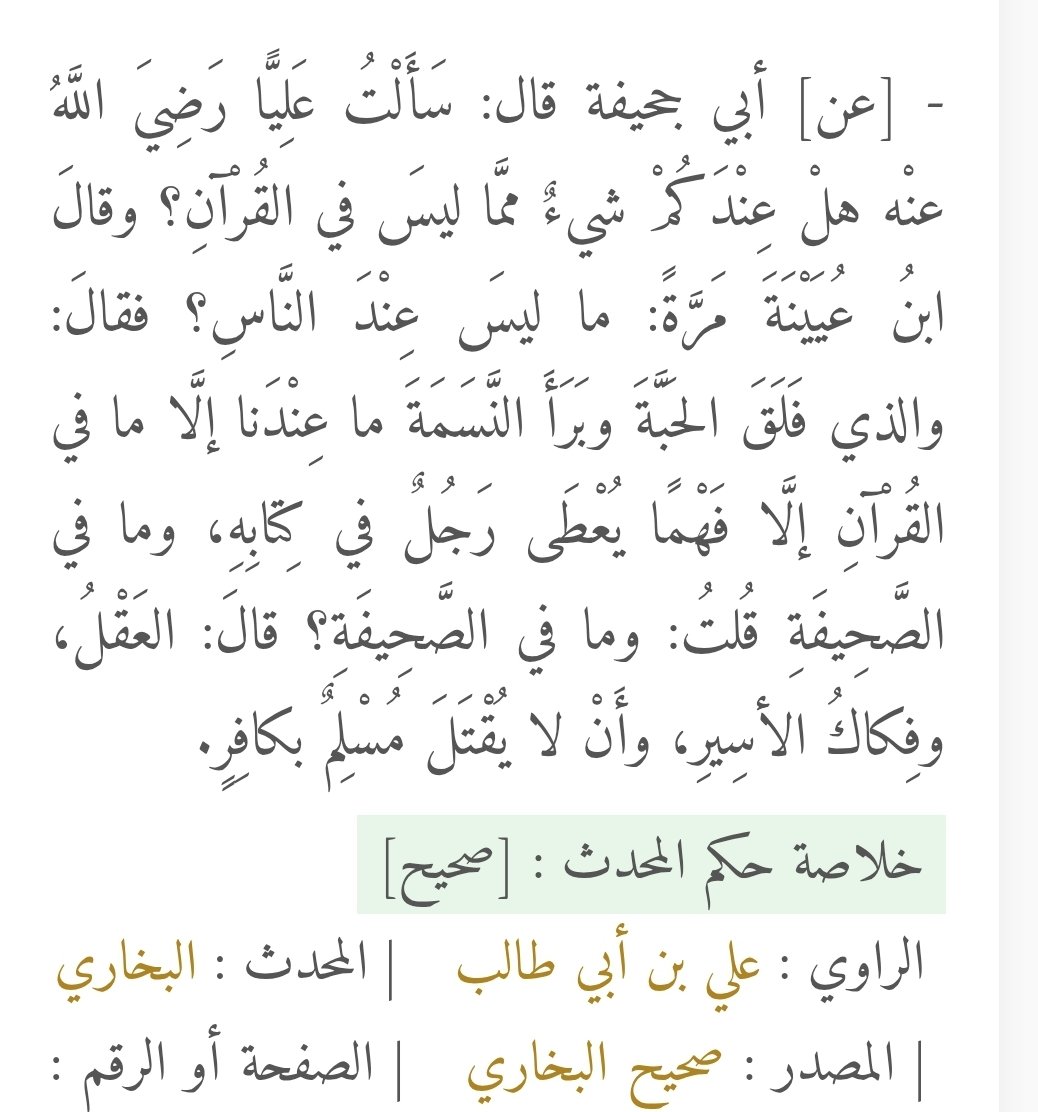 - [عن] أبي جحيفة قال: سَأَلْتُ عَلِيًّا رَضِيَ اللَّهُ
عنْه هلْ عِنْدَكُمْ شيءٌ ممَّا ليسَ في القُرْآنِ؟ وقالَ
ابنُ عُيَيْنَةَ مَرَّةً: ما ليسَ عِنْدَ النَّاسِ؟ فقالَ:
والذي فَلَقَ الحَبَّةَ وبَرَأَ النَّسَمَةَ ما عِنْدَنا إلَّا ما في
القُرْآنِ إلَّا فَهْمًا يُعْطَى رَجُلٌ في كِتَابِهِ، وما في
الصَّحِيفَةِ قُلتُ: وما في الصَّحِيفَةِ؟ قالَ: العَقْلُ،
وفِكاكُ الأسِيرِ، وأَنْ لا يُقْتَلَ مُسْلِمٌ بكافِرٍ.
خلاصة حكم المحدث : [صحيح]
الراوي : علي بن أبي طالب | المحدث : البخاري
| المصدر : صحيح البخاري | الصفحة أو الرقم :